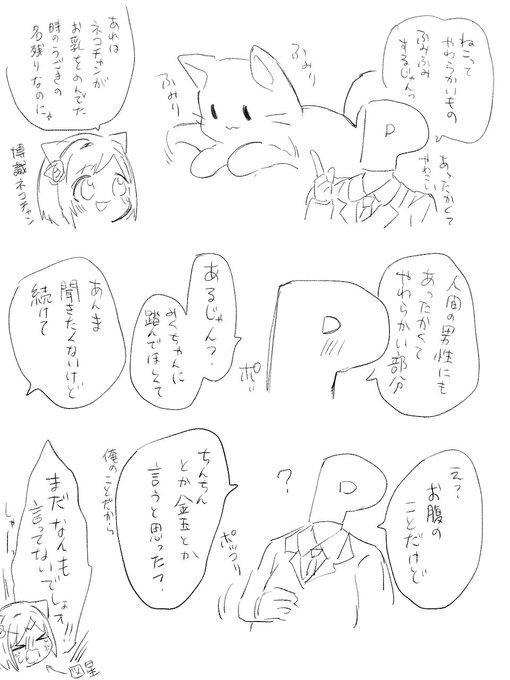 ねこって
やわらかいもの
ふみふみ
するじゃんっ
P
あったかくて
やわこい
ふみり
ふみり
あれは
ネコチャンが
お乳をのんでた
時のうごきの
名残りなのにゃ
博識ネコチャン
人間の男性にも
あったかくて
やわらかい部分
P
ポッ
あるじゃん?
みくちゃんに
踏んでほしくて
あんま
聞きたくないけど
続けて
え?
お腹の
ことだけど
P
?
ポッコリ
ちんちん
とか金玉とか
言うと思った?
俺のことだから
まだなんも
言ってないでしょォ
!!
しゃーっ
図星